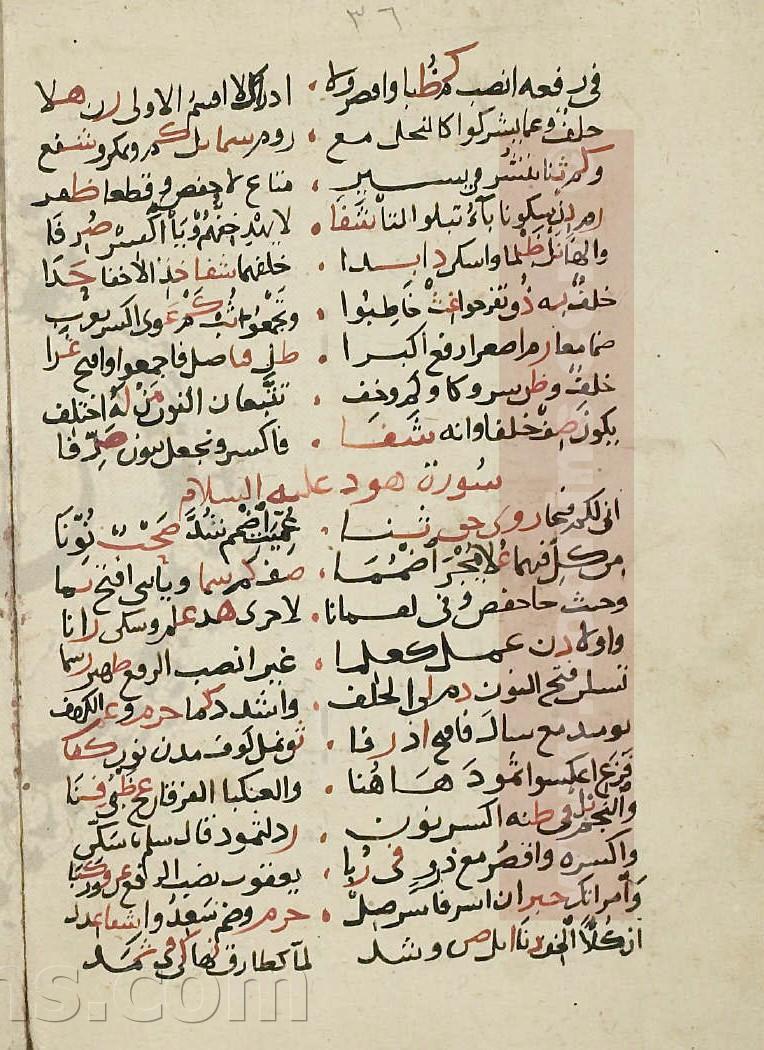 ٣٦
في رفعه انصب كم ظبا واقصر ولا . ادرى ولا اقسم الاولى زن هلا
خلف وعما يشركوا كالنحل مع . روم سما نل كم ويمكرو شفع
وكم ثنا ينشر في يسير . متاع لا حفص وقطعا ظفر
رم دن سكونا باء تبلو التا شفا . لا يهد خفهم ويا اكسر صرفا
والهاء نل ظلما واسكن ذا بدا . خلفهما شفا خذ الاخفا حدا
خلف به ذق تفرحوا غث خاطبوا . وتجمعوا ثب كم غوى اكسر يعزب
ضما معا رم اصغر ارفع اكبرا . ظل فتا صل فاجمعوا وافتح غرا
خلف وظن شركاوكم وخف . تتبعان النون من له اختلف
يكون صف خلفا وانه شفا . فاكسر ونجعل بنون صرفا
سورة هود عليه السلام
اني لكم فتحا روى حق ثنا . عميت اضمم شد صحب نونا
من كل فيهما علا مجرا اضمما . صف كم سما ويا بني افتح نما
وحيث جا حفص وفي لقمانا . لاخرى هد علم وسكن زانا
واولا دن عمل كعلما . غير انصب الرفع ظهير رسما
تسئلن فتح النون دم لي الخلف . واشدد كما حرم وعم الكهف
يومئذ مع سال فافتح اذ رفا . ثق نمل كوف مدن نون كفا
فزع اعكسوا ثمود ها هنا . والعنكبا الفرقان عج ظبى فنا
والنجم نل في ظنه اكسر نون . رد لثمود قال سلم سكن
واكسره واقصر مع ذرو في ربا . يعقوب نصب الرفع عن فوز كبا
وامراتك حبر ان اسر فاسر صل . حرم وضم سعدوا شفا عدل
ان كلا الخف دنا اتل صن وشد لما كطارق نها كن في ثمد
ns.com